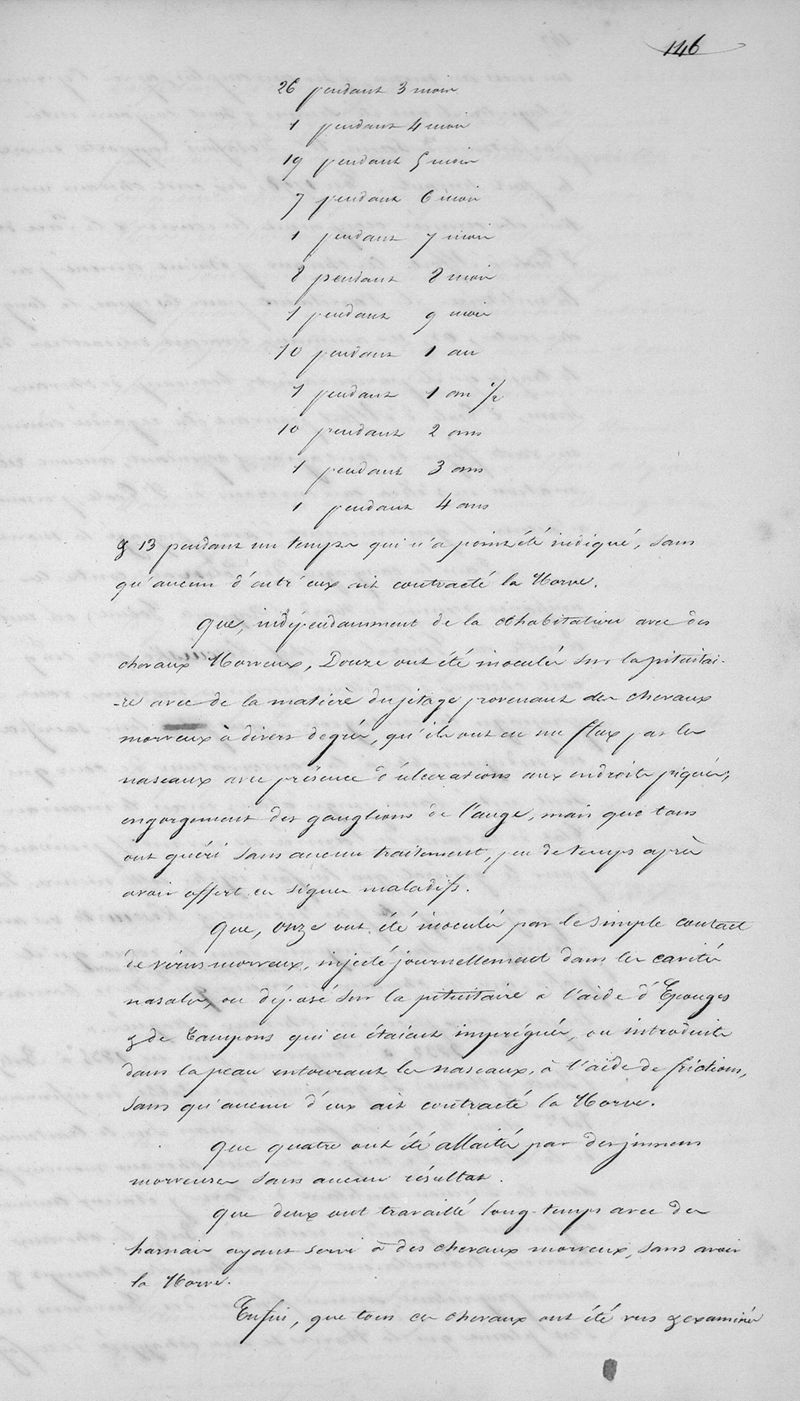 146
26 pendant 3 mois
1 pendant 4 mois
19 pendant 5 mois
7 pendant 6 mois
1 pendant 7 mois
8 pendant 8 mois
1 pendant 9 mois
10 pendant 1 an
1 pendant 1 an 1/2
10 pendant 2 ans
1 pendant 3 ans
1 pendant 4 ans
& 13 pendant un temps qui n'a point été indiqué, sans
qu'aucun d'entr'eux ait contracté la Morve.
Que, indépendamment de la cohabitation avec des
chevaux Morveux, Douze ont été inoculés sur la pituitai-
-re avec de la matière du jetage provenant des chevaux
morveux à divers degrés, qu'ils ont eu un flux par les
naseaux avec présence d'ulcérations aux endroits piqués;
engorgement des ganglions de l'auge, mais que tous
ont guéri sans aucun traitement, peu de temps après
avoir offert ces signes maladifs.
Que, onze ont été inoculés par le simple contact
de virus morveux, injecté journellement dans les cavités
nasales, ou déposé sur la pituitaire à l'aide d'Eponges
& de Tampons qui en étaient imprégnés, ou introduit
dans la peau entourant les naseaux, à l'aide de frictions,
sans qu'aucun d'eux ait contracté la Morve.
Que quatre ont été allaités par des jumens
morveuses sans aucun résultat.
Que deux ont travaillé long-temps avec des
harnais ayant servi à des chevaux morveux, sans avoir
la Morve.
Enfin, que tous ces chevaux ont été vus & examinés